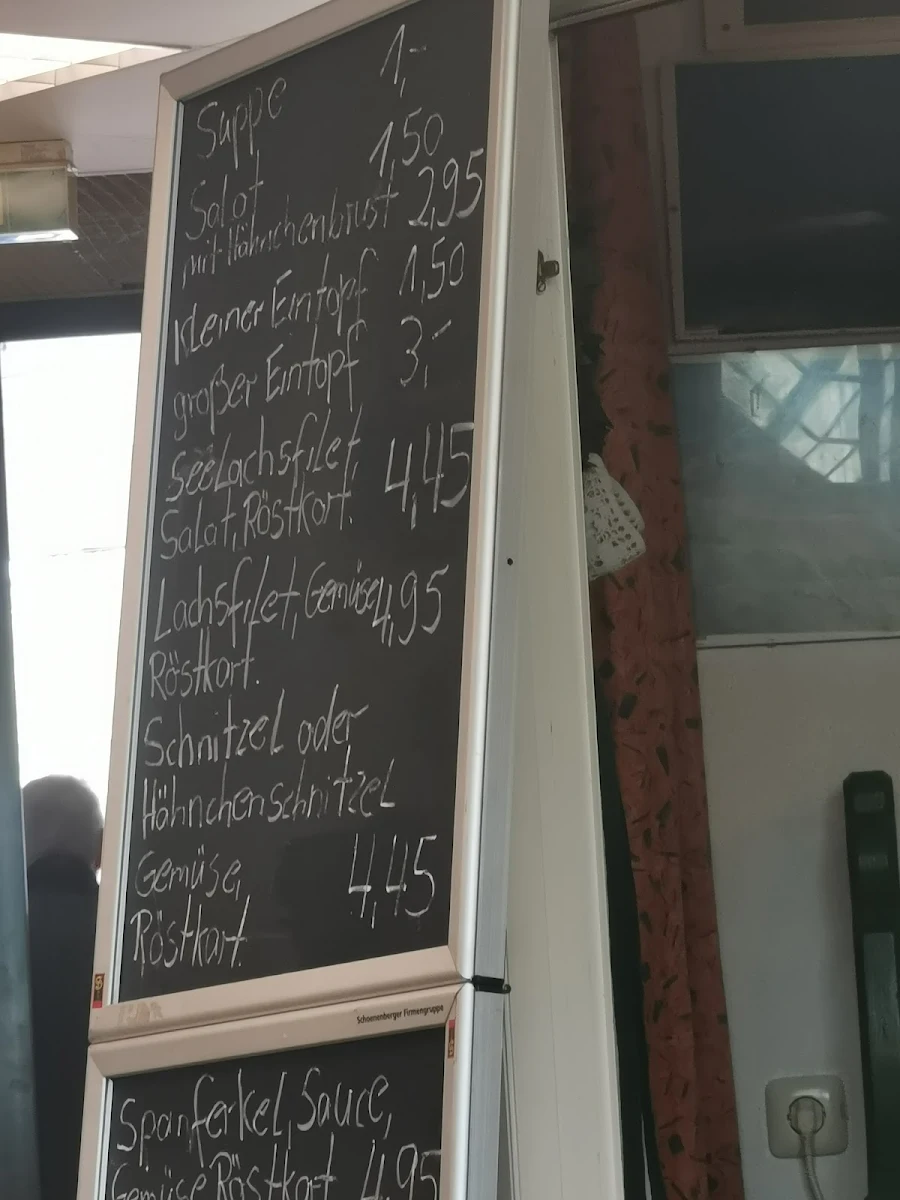 Suppe 1,-
Salat 1,50
mit Hähnchenbrust 2,95
kleiner Eintopf 1,50
großer Eintopf 3,-
Seelachsfilet,
Salat, Röstkart. 4,45
Lachsfilet, Gemüse 4,95
Röstkart.
Schnitzel oder
Hähnchenschnitzel
Gemüse, 4,45
Röstkart.
Schoenenberger Firmengruppe
Spanferkel, Sauce,
Gemüse Röstkart 4,95